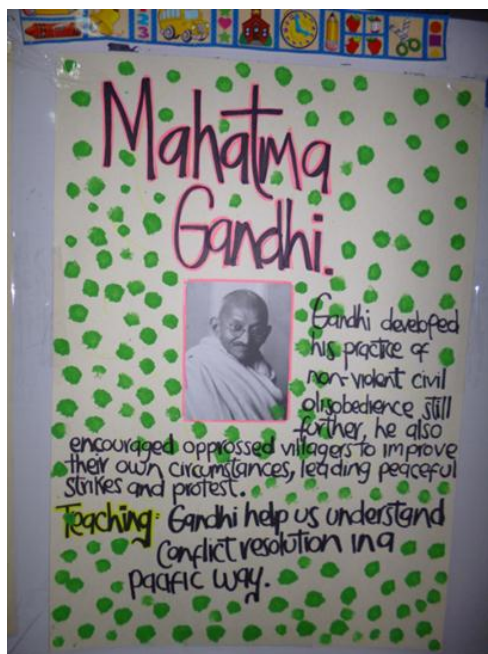 Mahatma
Gandhi.
Gandhi developed
his practice of
non-violent civil
disobedience still
further, he also
encouraged oppressed villagers to improve
their own circumstances, leading peaceful
strikes and protest.
Teaching: Gandhi help us understand
Conflict resolution in a
pacific way.
1
2
3